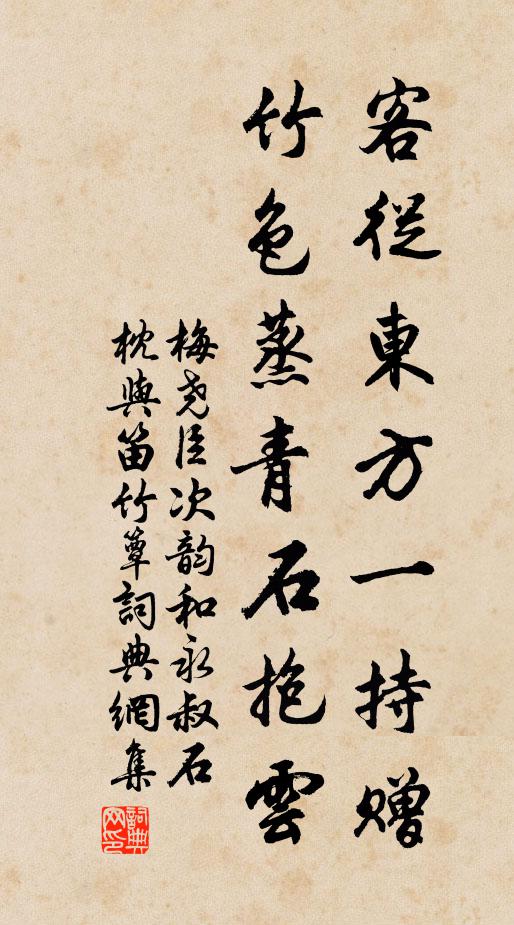 客從東方一持赠
竹色蒸青石抱雲
梅尧臣次韵和永叔石
枕與笛竹簟詞典網集
詞典网印